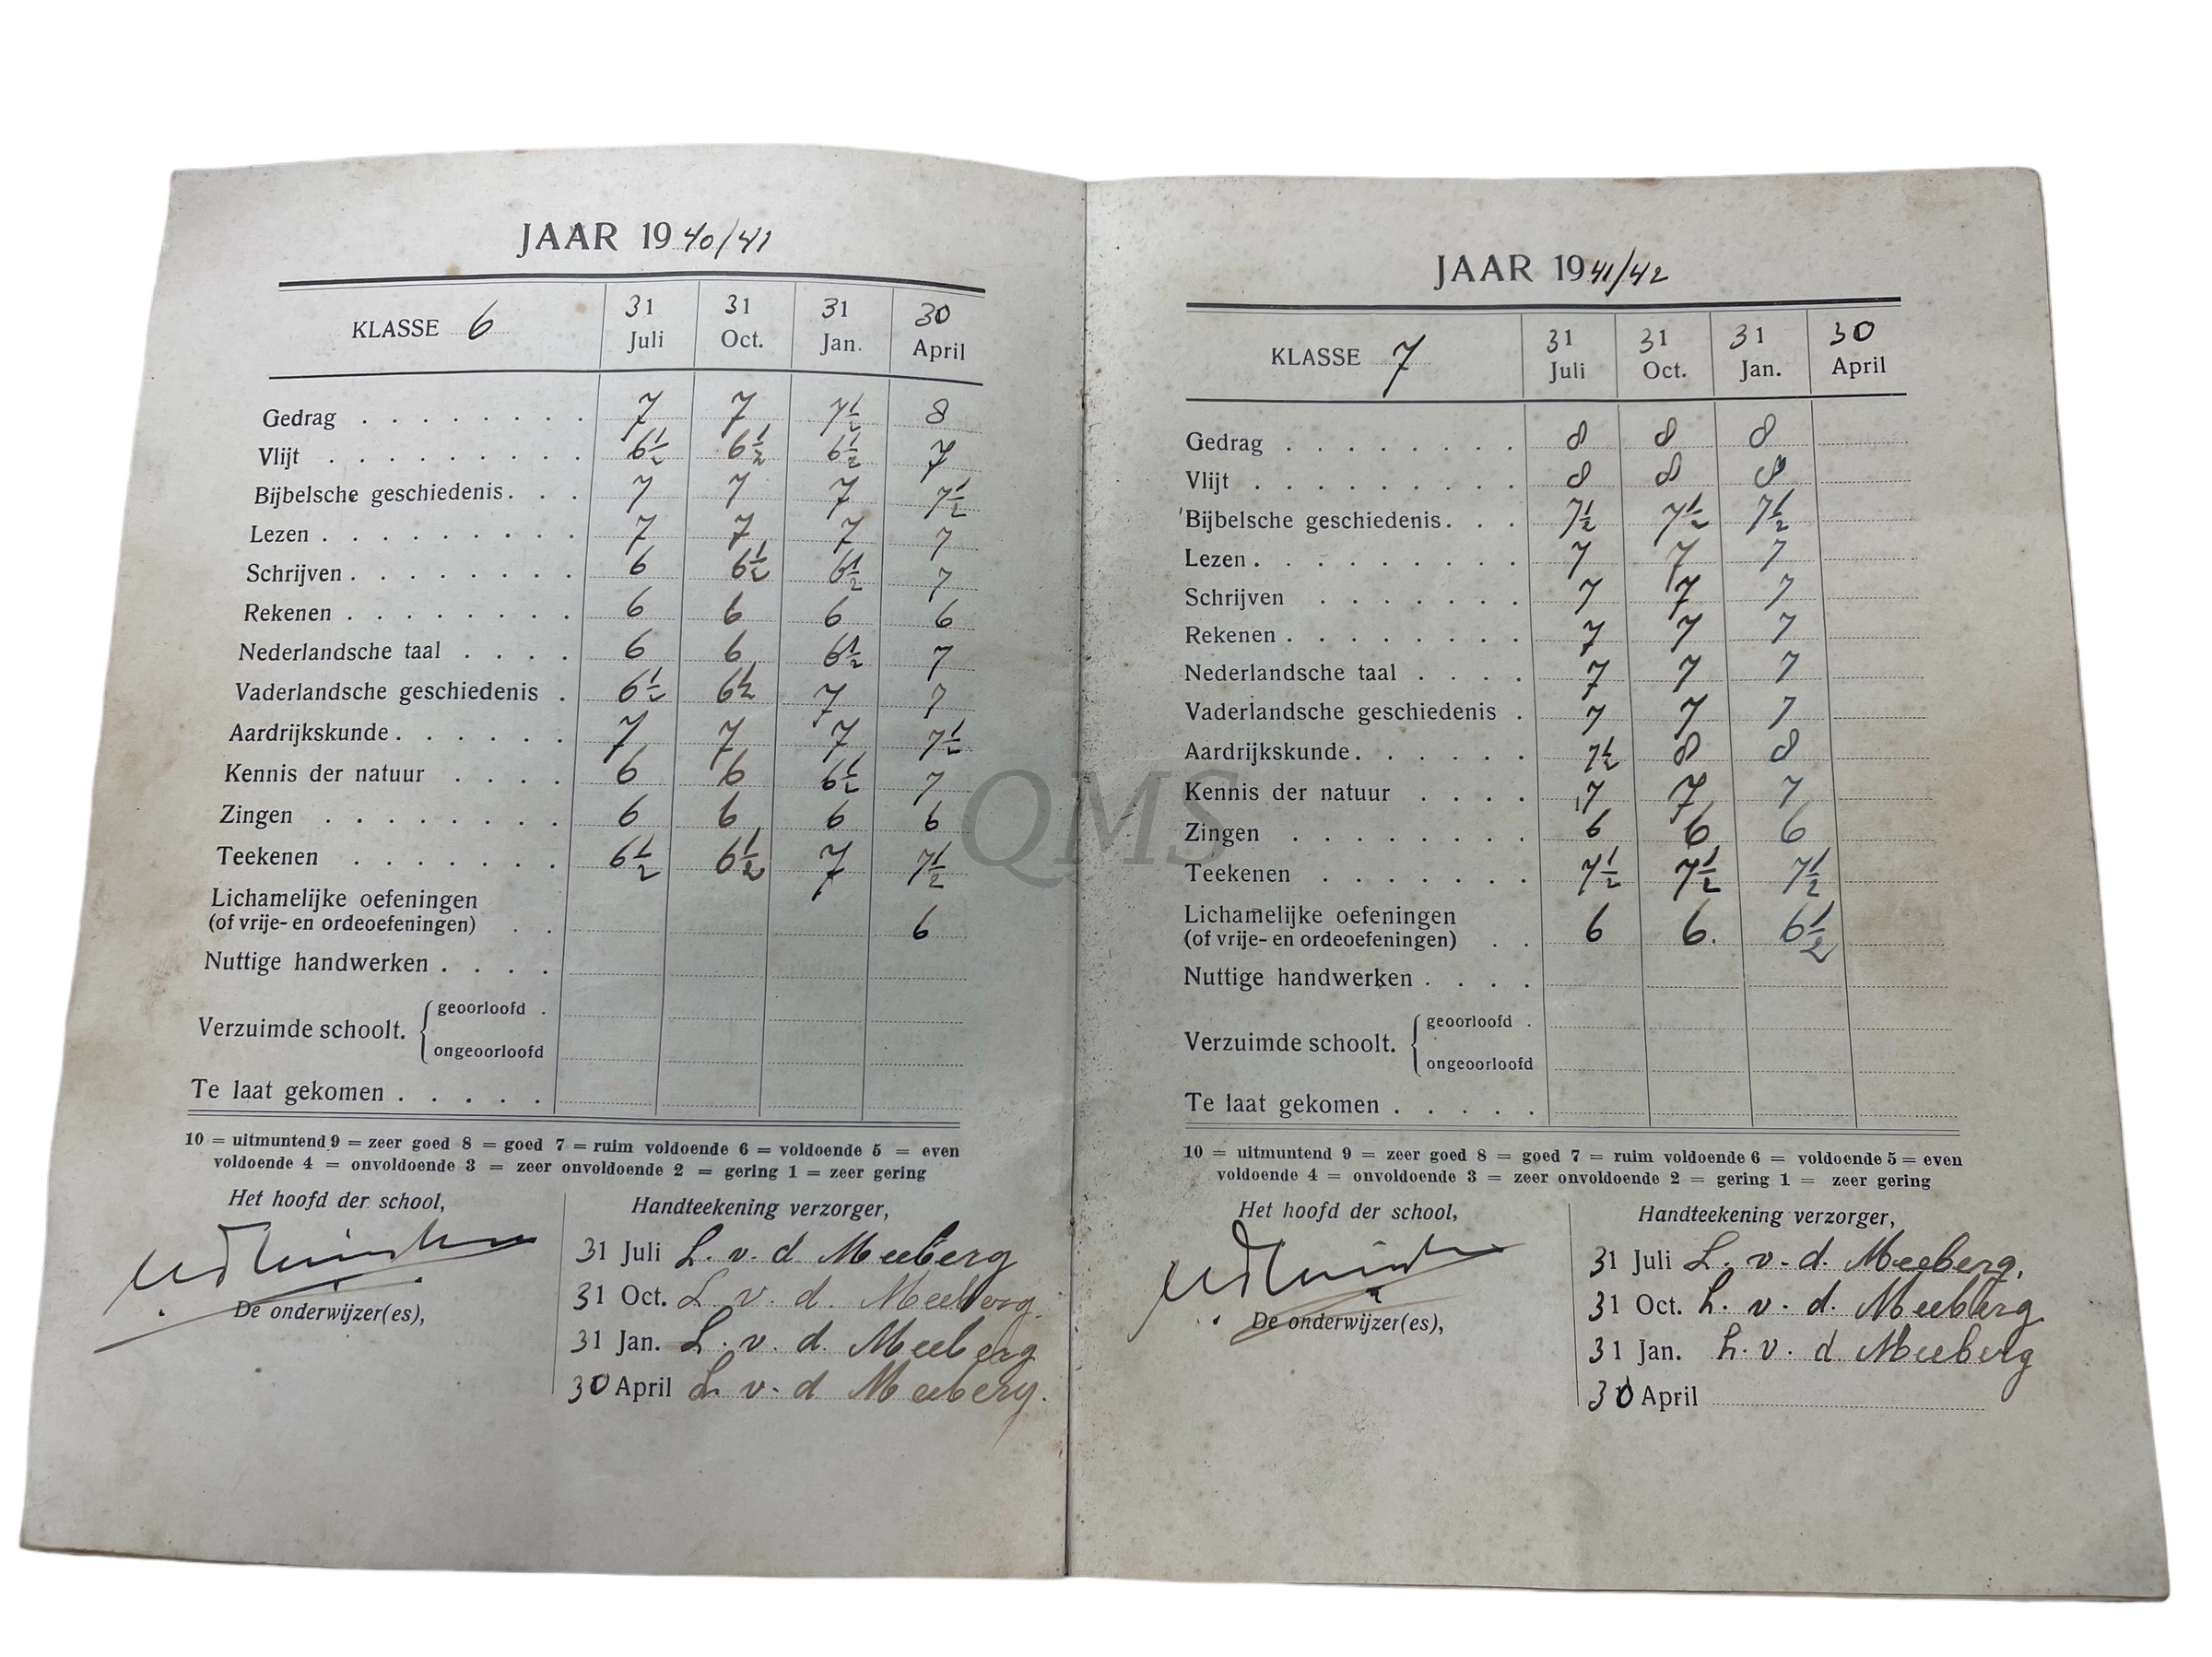 JAAR 1940/41
KLASSE 6 31 Juli 31 Oct. 31 Jan. 30 April
Gedrag . . . . . . . . 7 7 7½ 8
Vlijt . . . . . . . . . 6½ 6½ 6½ 7
Bijbelsche geschiedenis. . . 7 7 7 7½
Lezen . . . . . . . . . 7 7 7 7
Schrijven . . . . . . . . 6 6½ 6½ 7
Rekenen . . . . . . . . 6 6 6 6
Nederlandsche taal . . . . 6 6 6½ 7
Vaderlandsche geschiedenis . 6½ 6½ 7 7
Aardrijkskunde . . . . . . 7 7 7 7½
Kennis der natuur . . . . 6 6 6½ 7
Zingen . . . . . . . . 6 6 6 6
Teekenen . . . . . . . 6½ 6½ 7 7½
Lichamelijke oefeningen
(of vrije- en ordeoefeningen) . . 6
Nuttige handwerken . . . .
Verzuimde schoolt. { geoorloofd .
ongeoorloofd
Te laat gekomen . . . . .
10 = uitmuntend 9 = zeer goed 8 = goed 7 = ruim voldoende 6 = voldoende 5 = even
voldoende 4 = onvoldoende 3 = zeer onvoldoende 2 = gering 1 = zeer gering
Het hoofd der school,
De onderwijzer(es),
Handteekening verzorger,
31 Juli L. v. d Meeberg
31 Oct. L v. d. Meeberg.
31 Jan. L. v. d. Meeberg
30 April L v. d Meeberg.
JAAR 1941/42
KLASSE 7 31 Juli 31 Oct. 31 Jan. 30 April
Gedrag . . . . . . . . 8 8 8
Vlijt . . . . . . . . . 8 8 8
Bijbelsche geschiedenis. . . 7½ 7½ 7½
Lezen . . . . . . . . . 7 7 7
Schrijven . . . . . . . 7 7 7
Rekenen . . . . . . . . 7 7 7
Nederlandsche taal . . . . 7 7 7
Vaderlandsche geschiedenis . 7 7 7
Aardrijkskunde . . . . . . 7½ 8 8
Kennis der natuur . . . . 7 7 7
Zingen . . . . . . . . 6 6 6
Teekenen . . . . . . . 7½ 7½ 7½
Lichamelijke oefeningen
(of vrije- en ordeoefeningen) . . 6 6. 6½
Nuttige handwerken . . . .
Verzuimde schoolt. { geoorloofd .
ongeoorloofd
Te laat gekomen . . . . .
10 = uitmuntend 9 = zeer goed 8 = goed 7 = ruim voldoende 6 = voldoende 5 = even
voldoende 4 = onvoldoende 3 = zeer onvoldoende 2 = gering 1 = zeer gering
Het hoofd der school,
De onderwijzer(es),
Handteekening verzorger,
31 Juli L. v. d. Meeberg.
31 Oct. L. v. d. Meeberg
31 Jan. L. v. d Meeberg
30 April
QMS